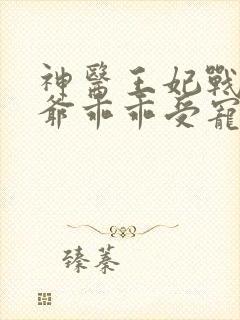 神醫王妃戰
爺乖乖受寵
臻蓁